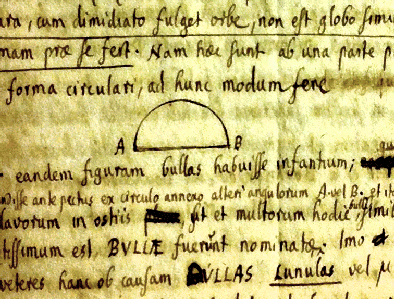 ura, cum dimidiato fulget orbe, non est globo simi
nam præ se fert. Nam hæc sunt ab una parte p
forma circulari, ad hunc modum fere
A B
eandem figuram bullas habuisse infantium;
ante pectus ex circulo annexo alteri angulorum A vel B. et it
lavorum in ostiis ut et multorum hodie simili
tissimum est, BVLLÆ fuerunt nominatæ. Imo
veteres hanc ob causam BVLLAS Lunulas vel